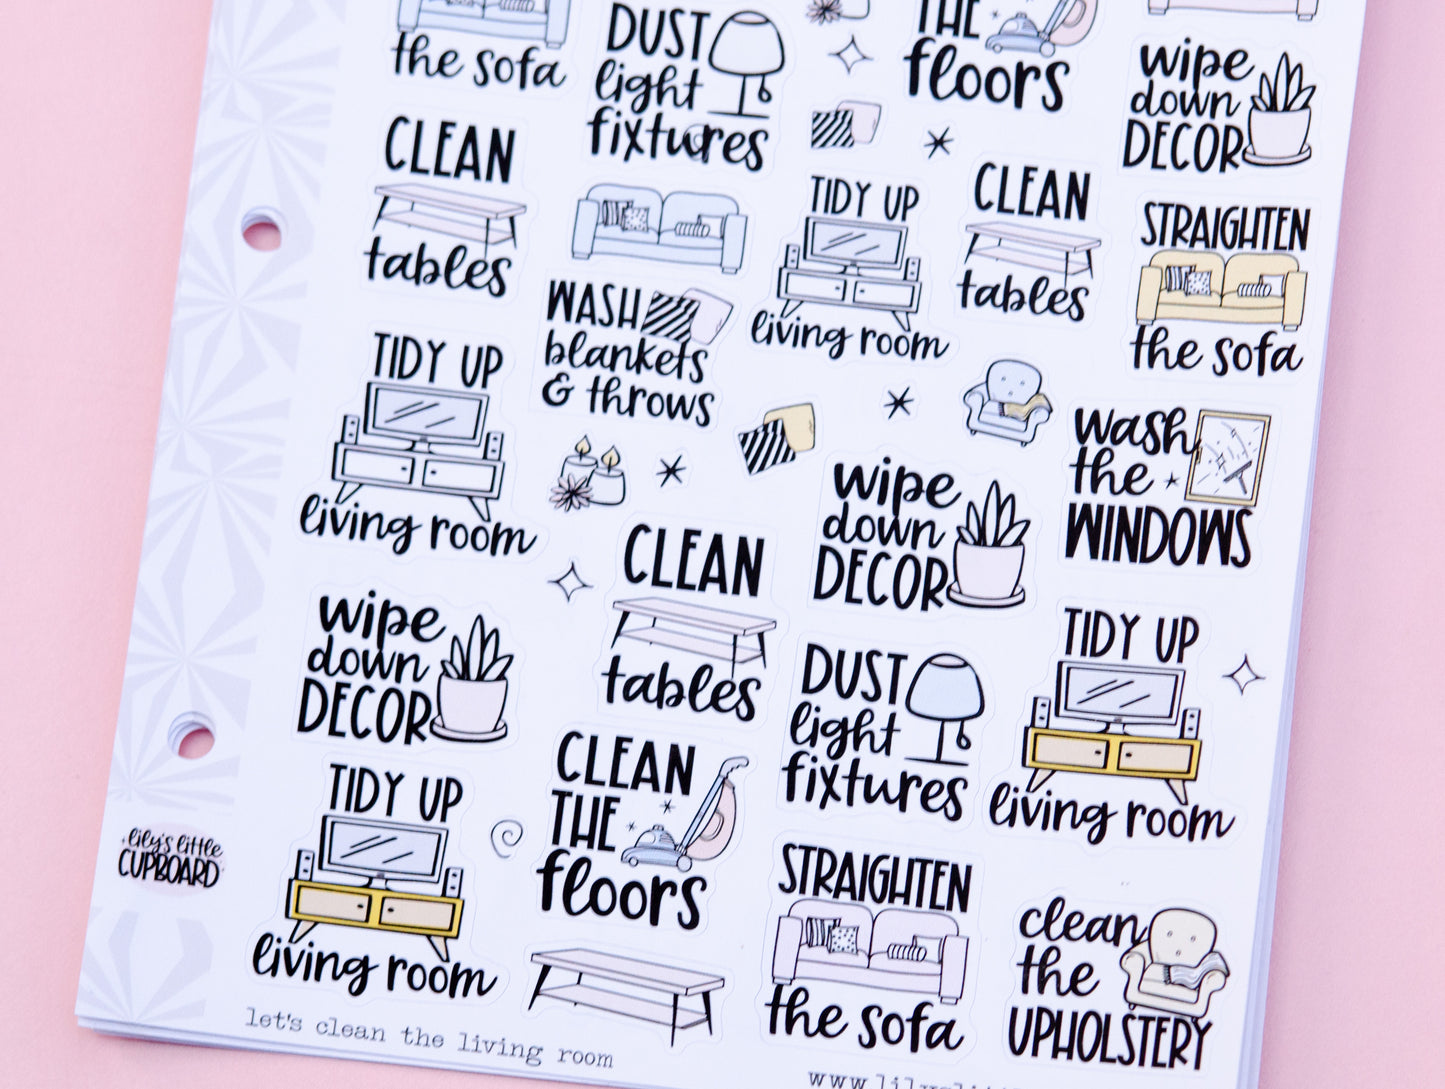 the sofa
DUST
light
fixtures
THE
floors
wipe
down
DECOR
CLEAN
tables
TIDY UP
living room
CLEAN
tables
STRAIGHTEN
the sofa
WASH
blankets
& throws
TIDY UP
living room
wash
the
WINDOWS
wipe
down
DECOR
CLEAN
tables
wipe
down
DECOR
DUST
light
fixtures
TIDY UP
living room
TIDY UP
living room
CLEAN
THE
floors
STRAIGHTEN
the sofa
clean
the
UPHOLSTERY
lily's little
CUPBOARD
let's clean the living room